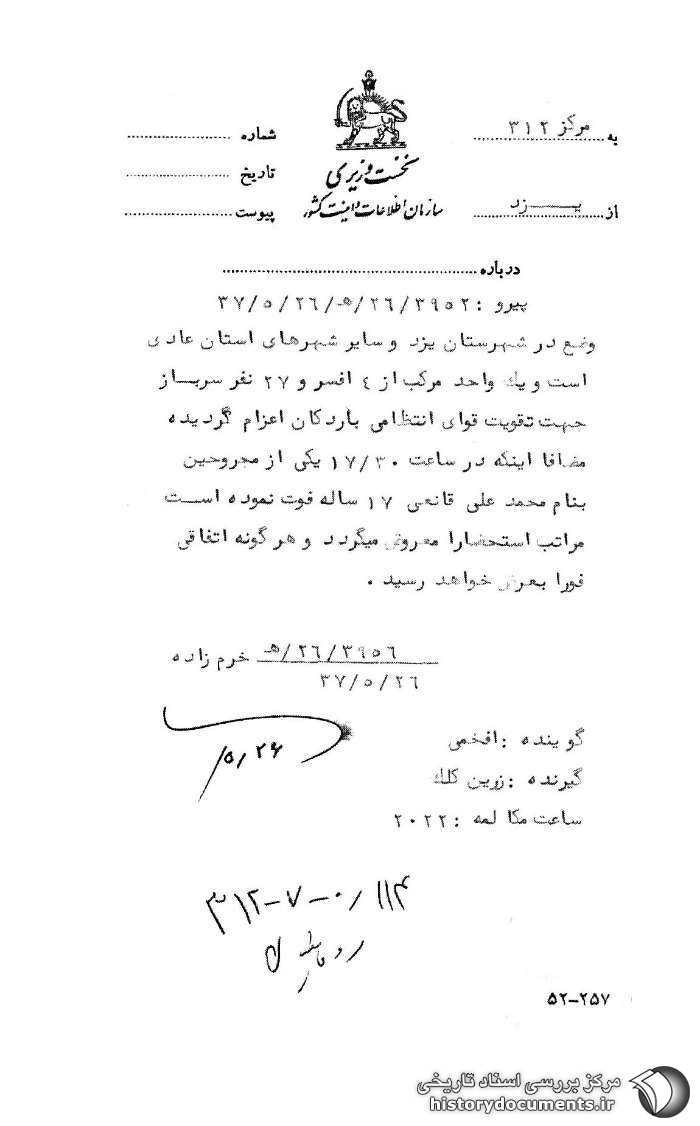 به مرکز ۳۱۲
از یـــزد
نخست وزیری
سازمان اطلاعات و امنیت کشور
شماره
تاریخ
پیوست
درباره
پیرو : ۳۹۵۲/۲۶/هـ/۳۷/۵/۲۶
وضع در شهرستان یزد و سایر شهرهای استان عادی
است و یك واحد مرکب از ٤ افسر و ۲۷ نفر سربــاز
جهت تقویت قوای انتظامی باردکان اعزام گردیده
مضافا اینکه در ساعت ۱۷/۳۰ یکی از مجروحین
بنام محمد علی قانعی ۱۷ ساله فوت نموده اســت
مراتب استحضارا معروض میگردد و هر گونه اتفاقی
فورا بعرض خواهد رسید .
۳۹۵٦/۲٦/هـ خرم زاده
۳۷/۵/۲٦
۵/۲۶
گوینده : افخمی
گیرنده : زرین کلك
ساعت مکالمه : ۲۰۲۲
۳۱۲-۷-۰/۱۱۴
۵۲-۲۵۷
مرکز بررسی اسناد تاریخی
historydocuments.ir